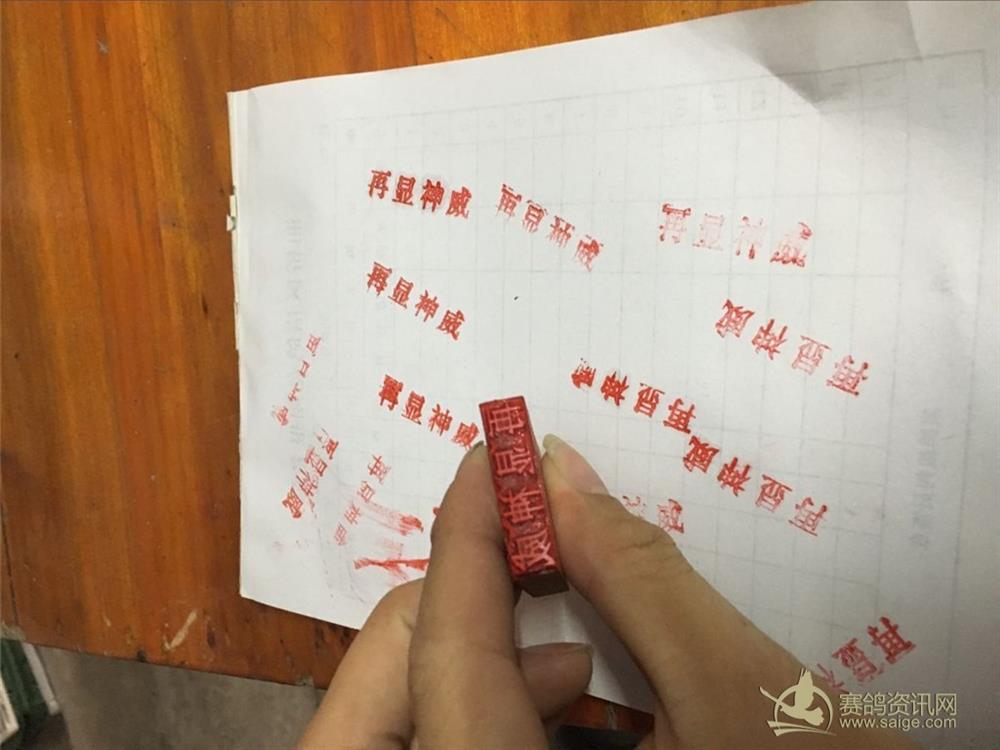 再显神威
再显神威
再显神威
再显神威
再显神威
再显神威
再显神威
再显神威
再显神威
再显
赛鸽资讯网
www.saige.com